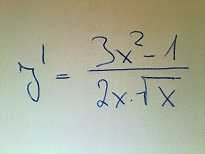 y' = \frac{3x^2 - 1}{2x \cdot \sqrt{x}}